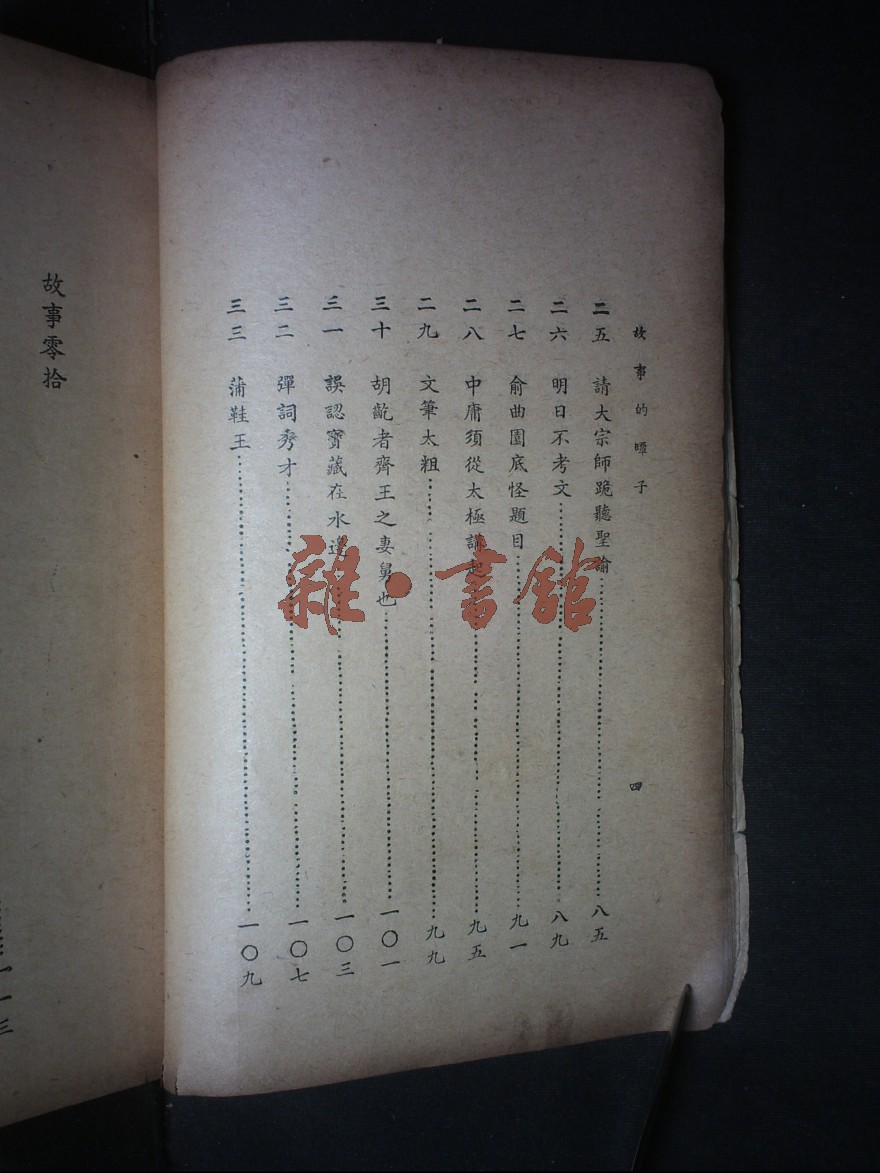 故事的曋子
四
二五　請大宗師跪聽聖諭……八五
二六　明日不考文……八九
二七　俞曲園底怪題目……九一
二八　中庸須從太極講起……九五
二九　文筆太粗……九九
三十　胡齕者齊王之妻舅也……一〇一
三一　誤認寶藏在水邊……一〇三
三二　彈詞秀才……一〇七
三三　蒲鞋王……一〇九
故事零拾……一一三
雜·書館